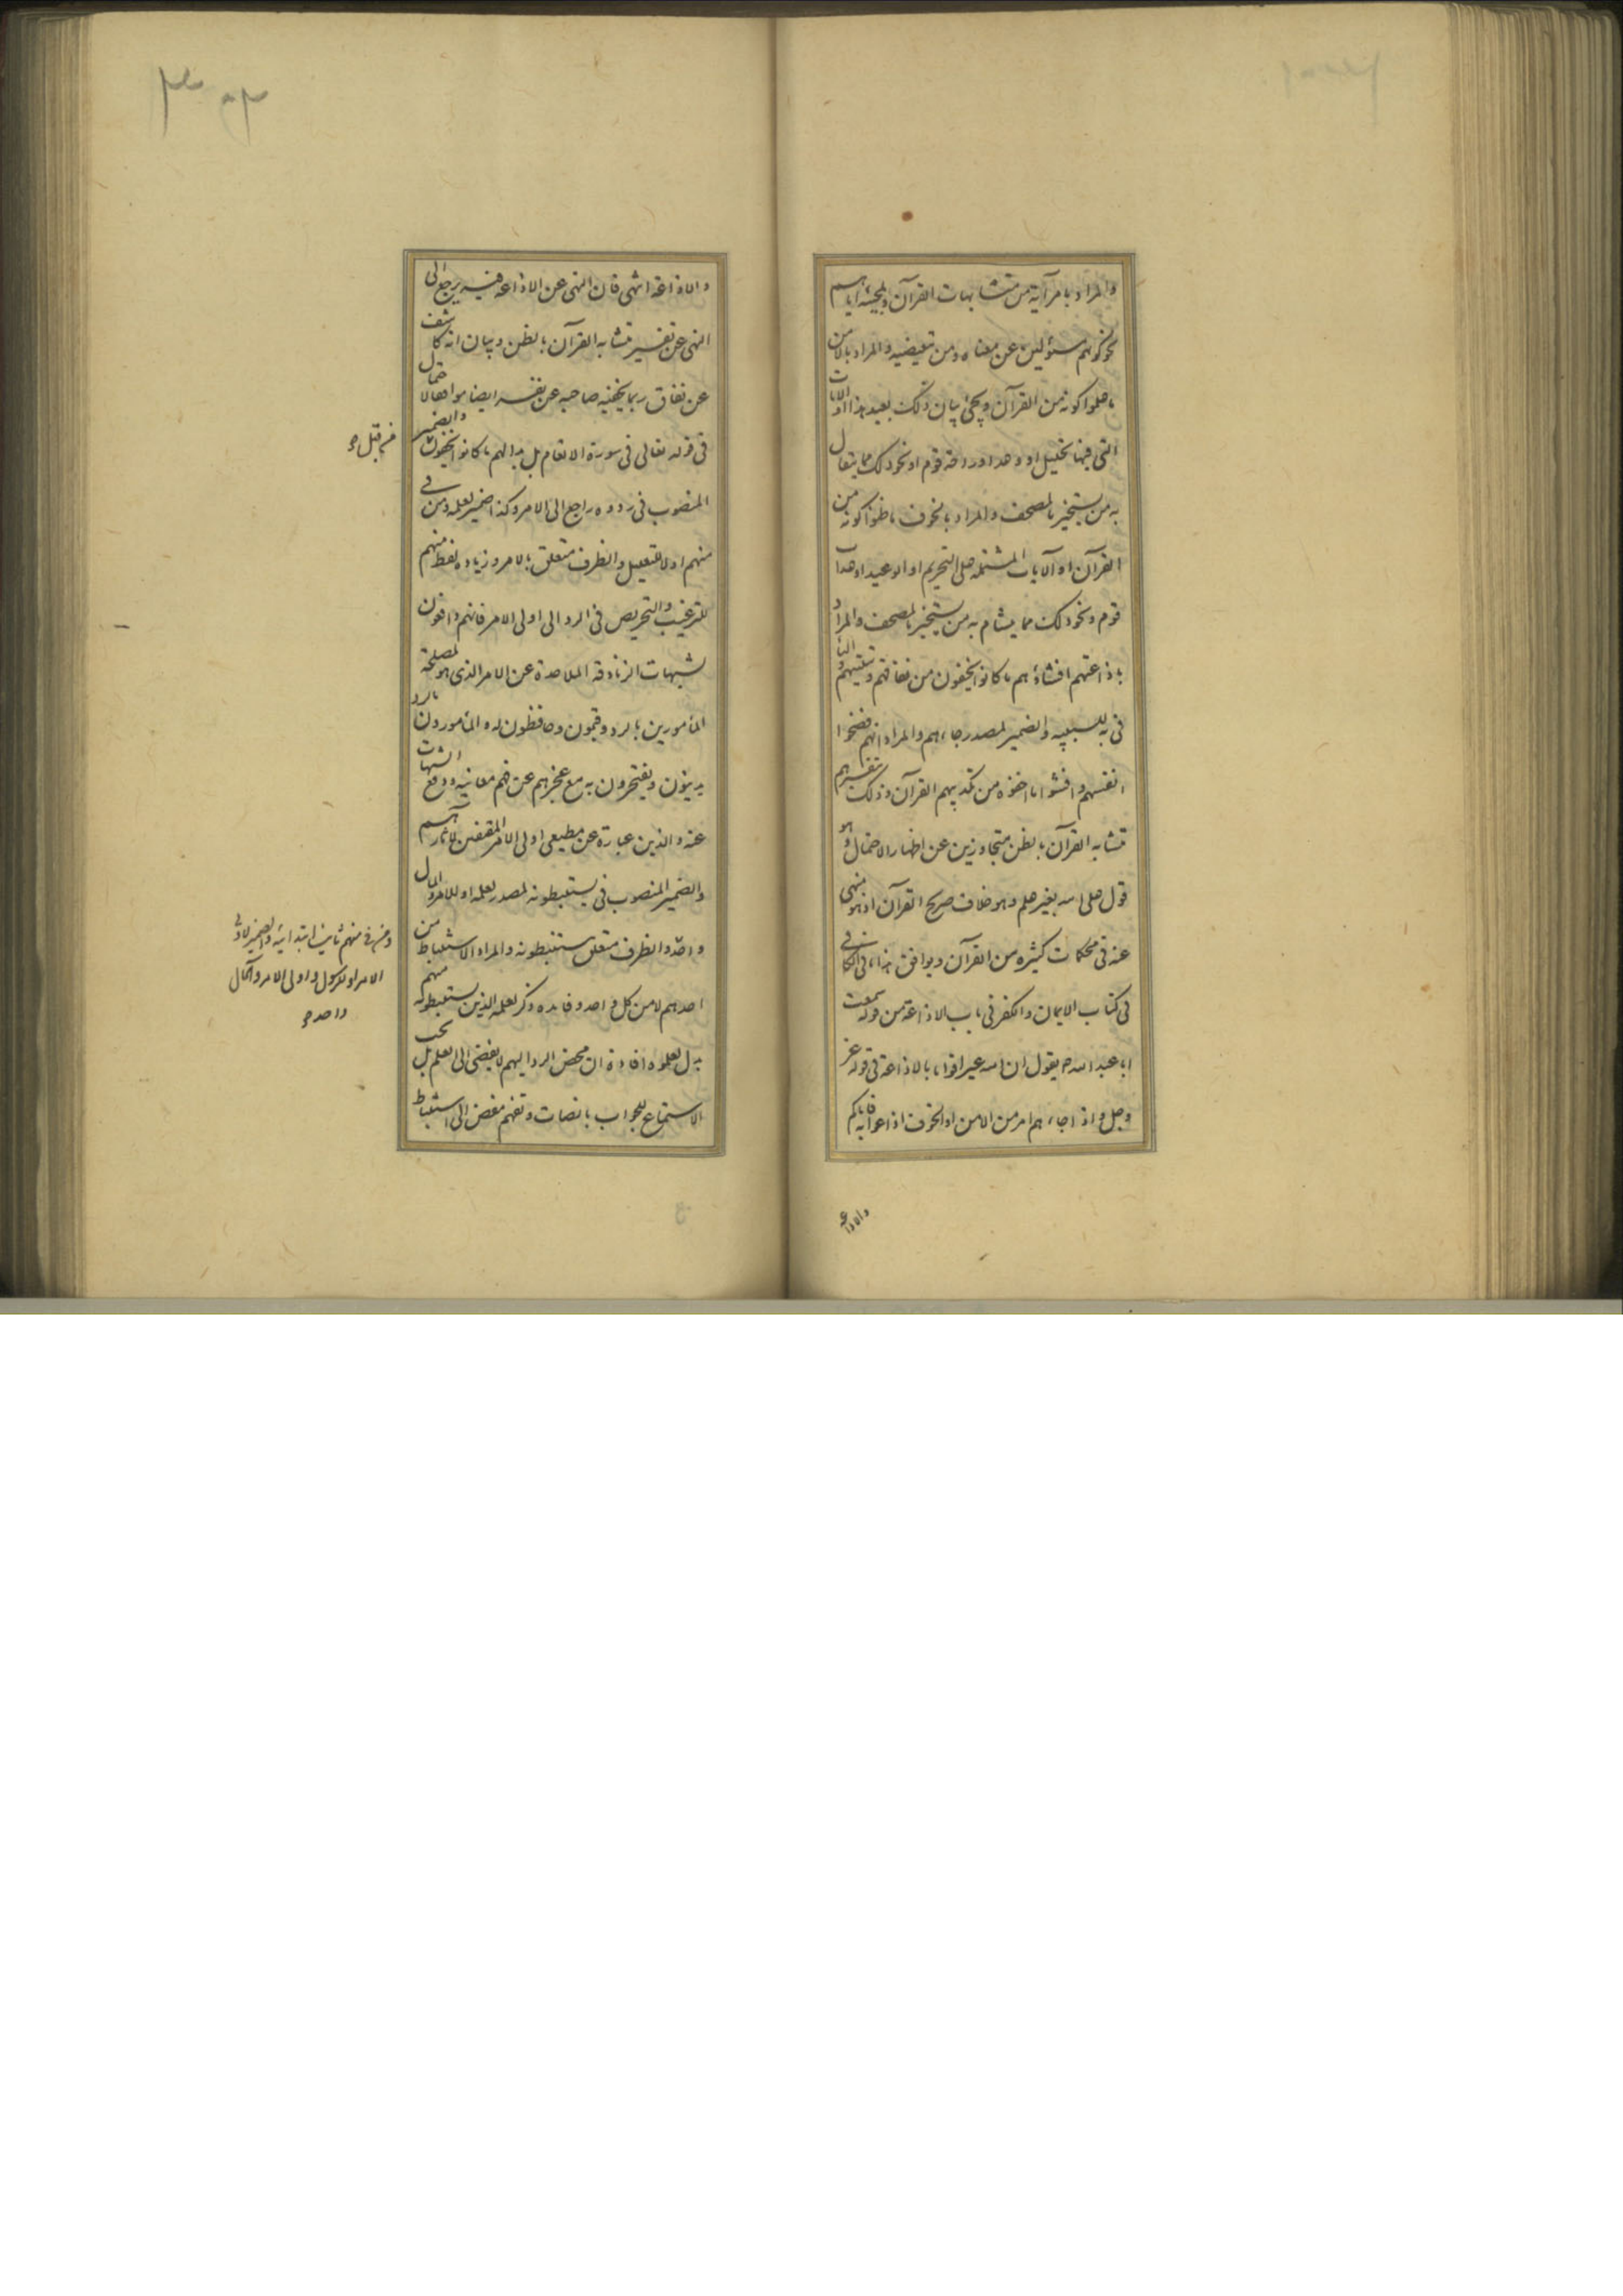 والمراد بامر آية من متشابهات القرآن وبمجيئه اياهم
كونهم مسئولين عن معناه ومن تبعيضية والمراد بالامن
ما ظنوا كونه من القرآن ويجئ بيان ذلك بعيد هذا او الآيات
التي فيها تحليل او وعد او راحة قوم او نحو ذلك مما يتفال
به من يستخير بالمصحف والمراد بالخوف ما ظنوا كونه من
القرآن او الآيات المشتملة على التحريم او الوعيد او عذاب
قوم ونحو ذلك مما يتشام به من يستخير بالمصحف والمراد
باذاعتهم افشاؤهم ما كانوا يخفون من نفاقهم والباء
في به للسببية والضمير لمصدر جاءهم والمراد انهم فضحوا
انفسهم وافشوا ما اخفوه من تكذيبهم القرآن وذلك تفسيرهم
متشابه القرآن بالظن متجاوزين عن اظهار الاحتمال وهو
قول على الله بغير علم وهو خلاف صريح القرآن اذ هو منهي
عنه في محكمات كثيرة من القرآن ويوافق هذا ما في الكافي
في كتاب الايمان والكفر في باب الاذاعة من قوله سمعت
ابا عبد الله يقول ان الله عير اقواما بالاذاعة في قوله عز
وجل واذا جاءهم امر من الامن او الخوف اذاعوا به فاياكم
والاذاعة
والاذاعة انتهى فان النهي عن الاذاعة فيه يرجع الى
النهي عن تفسير متشابه القرآن بالظن وبيان انه كاشف
عن نفاق ربما يخفيه صاحبه عن نفسه ايضا موافقا لاحتمال
في قوله تعالى في سورة الانعام بل بدا لهم ما كانوا يخفون والضمير
من قبل
المنصوب في ردوه راجع الى الامر وكذا ضمير لعلمه ومن في
منهم اولا للتعليل والظرف متعلق بالامر وزيادة لفظ منهم
للترغيب والتحريص في الرد الى اولي الامر فانهم دافعون
لشبهات الزنادقة الملاحدة عن الامر الذي هو لمصلحة
المأمورين بالرد وقيمون وحافظون له والمأمورون بالرد
يدينون ويفتخرون به مع عجزهم عن فهم معانيه ودفع الشبهات
عنه والذين عبارة عن مطيعي اولي الامر المقتفين لآثارهم
والضمير المنصوب في يستنبطونه لمصدر لعلمه او للامر والمآل
واحد والظرف متعلق بيستنبطونه والمراد الاستنباط من
ومن في منهم ثانيا ابتدائية والضمير لاولي
الامر او للرسول واولي الامر والمآل
واحد
احدهم لا من كل واحد وفائدة ذكر لعلمه الذين يستنبطونه منهم
بدل لعلموه افادة ان محض الرد اليهم لا يفضي الى العلم بل يجب
الاستماع للجواب بانصات وتفهم مفض الى استنباط